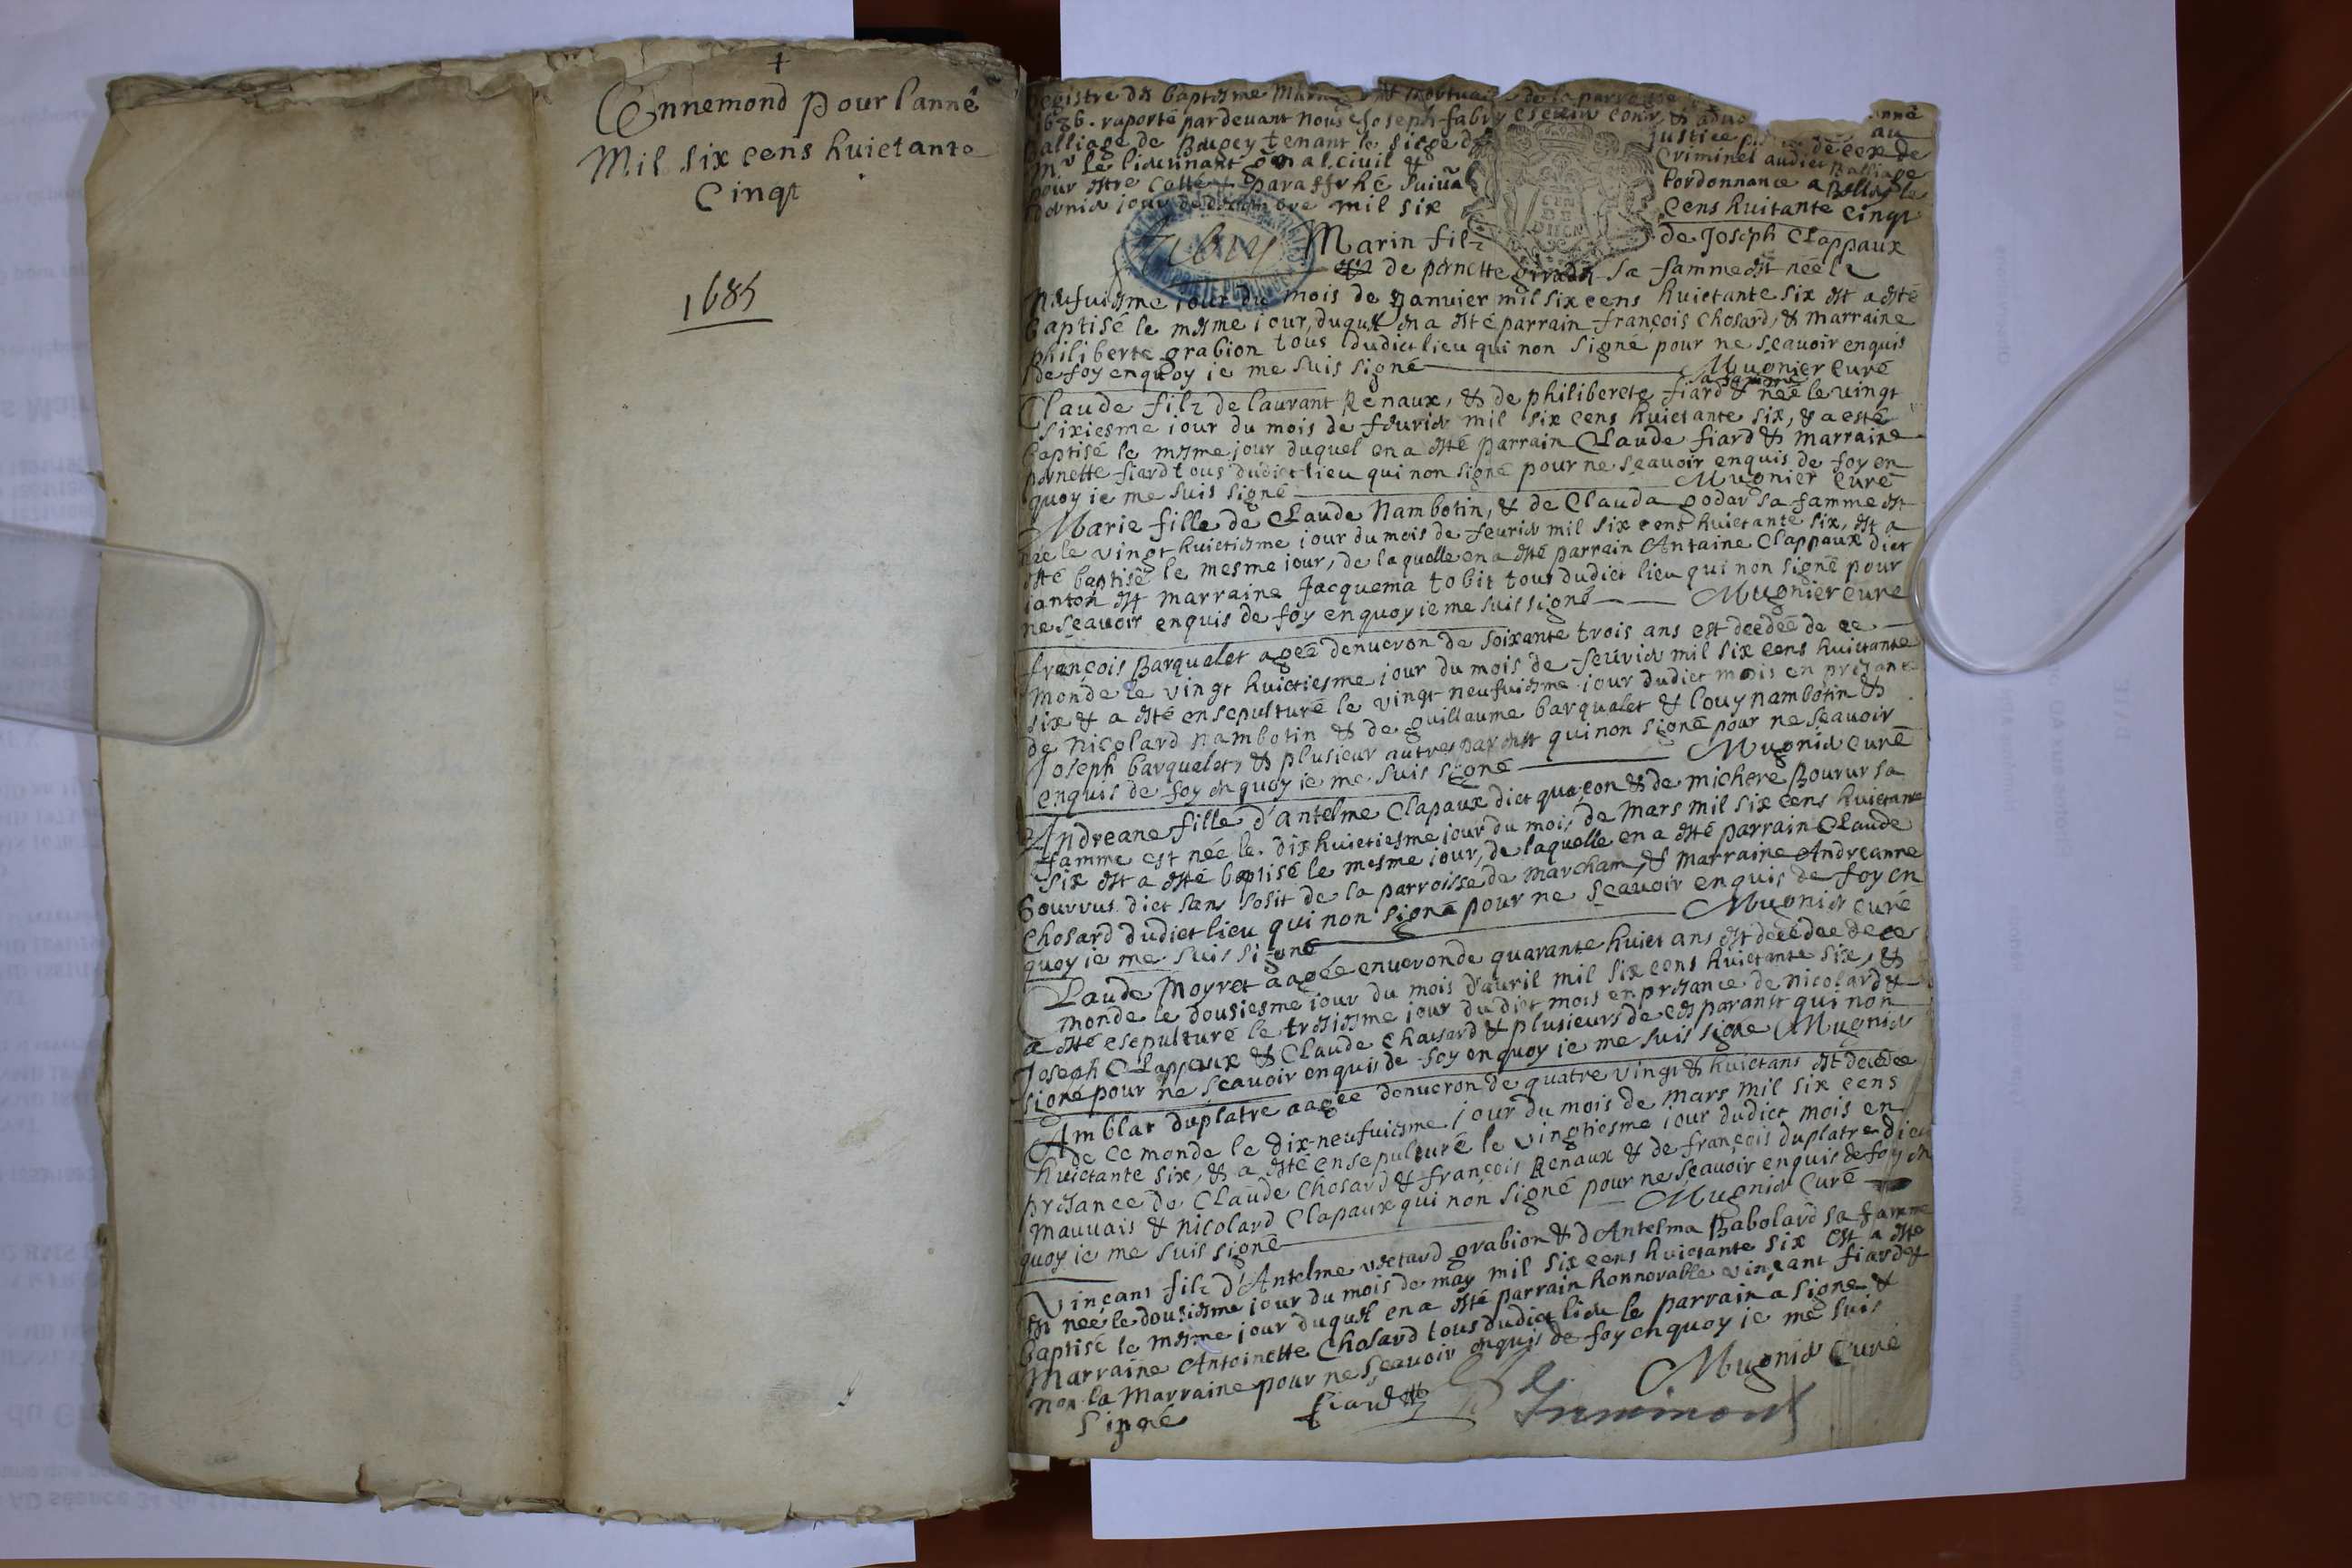 +
Ennemond pour l'anné
Mil six cens huictante
Cinqt
1685
Registre des baptesme de la parroisse
1686. raporté pardevant nous Joseph fabry
balliage de Bugey tenant le siege de justice
Mr le lieutenant civil & Criminel audict Balliage
pour estre cotté & paraffrhé suivā lordonnance a Belley le
dernier jour de decembre mil six cens huitante cinqt
fabry
Marin filz de Joseph Clappaux
de pernette sa famme est née le
neufuiesme jour du mois de Janvier mil six cens huictante six est a esté
baptisé le mesme jour, duquel en a esté parrain françois Chosard, & marraine
philiberte grabion tous dudict lieu qui non signé pour ne sçauoir enquis
de foy enquoy ie me suis signé Mugnier curé
sa famme
Claude filz de laurant Renaux, & de philiberte fiard & née le vingt
sixiesme iour du mois de feurier mil six cens huictante six, & a esté
baptisé le mesme jour duquel en a esté parrain Claude fiard & marraine
pernette fiard tous dudict lieu qui non signé pour ne sçauoir enquis de foy en
quoy ie me suis signé Mugnier curé
Marie fille de Claude Nambotin, & de Clauda godar sa famme est
née le vingt huictiesme iour du mois de feurier mil six cens huictante six, est a
esté baptisé le mesme iour, de laquelle en a esté parrain Antaine Clappaux dict
ianton est marraine Jacquema tobit tous dudict lieu qui non signé pour
ne sçauoir enquis de foy enquoy ie me suis signé Mugnier curé
françois Barqualet agée denueron de soixante trois ans est decedée de ce
monde le vingt huictiesme iour du mois de feuvrier mil six cens huictante
six & a esté ensepulturé le vingt neufuiesme iour dudict mois en presance
de Nicolard nambotin & de guillaume barqualet & louy nambotin &
Joseph barqualet, & plusieur autres parant qui non signé pour ne sçauoir
enquis de foy en quoy ie me suis signé Mugnier curé
Andreane fille d'antelme Clapaux dict quaçon & de michere Bourur sa
famme est née le dix huictiesme jour du mois de mars mil six cens huictante
six est a esté baptisé le mesme iour, de laquelle en a esté parrain Claude
bourrut dict sans sosit de la parroisse de marcham, & marraine Andreanne
Chosard dudict lieu qui non signé pour ne sçauoir enquis de foy en
quoy ie me suis signé Mugnier curé
Claude Moyret aagée enueron de quarante huict ans est decedée de ce
monde le dousiesme iour du mois d'auril mil six cens huictante six, &
a esté esepulturé le tresiesme iour dudict mois en presance de nicolard &
Joseph Clappaux & Claude Chausard & plusieurs de ces parantt qui non
signé pour ne sçauoir enquis de foy enquoy ie me suis signé Mugnier
Amblar duplatre aagée denueron de quatre vingt & huictans est decedée
de ce monde le dix-neufuiesme jour du mois de mars mil six cens
huictante six, & a esté ensepulturé le vingtiesme iour dudict mois en
presance de Claude Chosard & françois Renaux & de françois duplatre dict
mauuais & nicolard Clapaux qui non signé pour ne sçauoir enquis de foy en
quoy ie me suis signé Mugnier curé
Vinçans filz d'Antelme grabion & d'Antelma Babolard sa famme
est neé le dousiesme iour du mois de may mil six cens huictante six est a esté
baptisé le mesme iour duquel en a esté parrain honnorable vinçant fiard &
Marraine Antoinette Chosard tous dudict lieu le parrain a signe &
non la Marraine pour ne sçauoir enquis de foy enquoy ie me suis
signé fiard Mugnier Curé